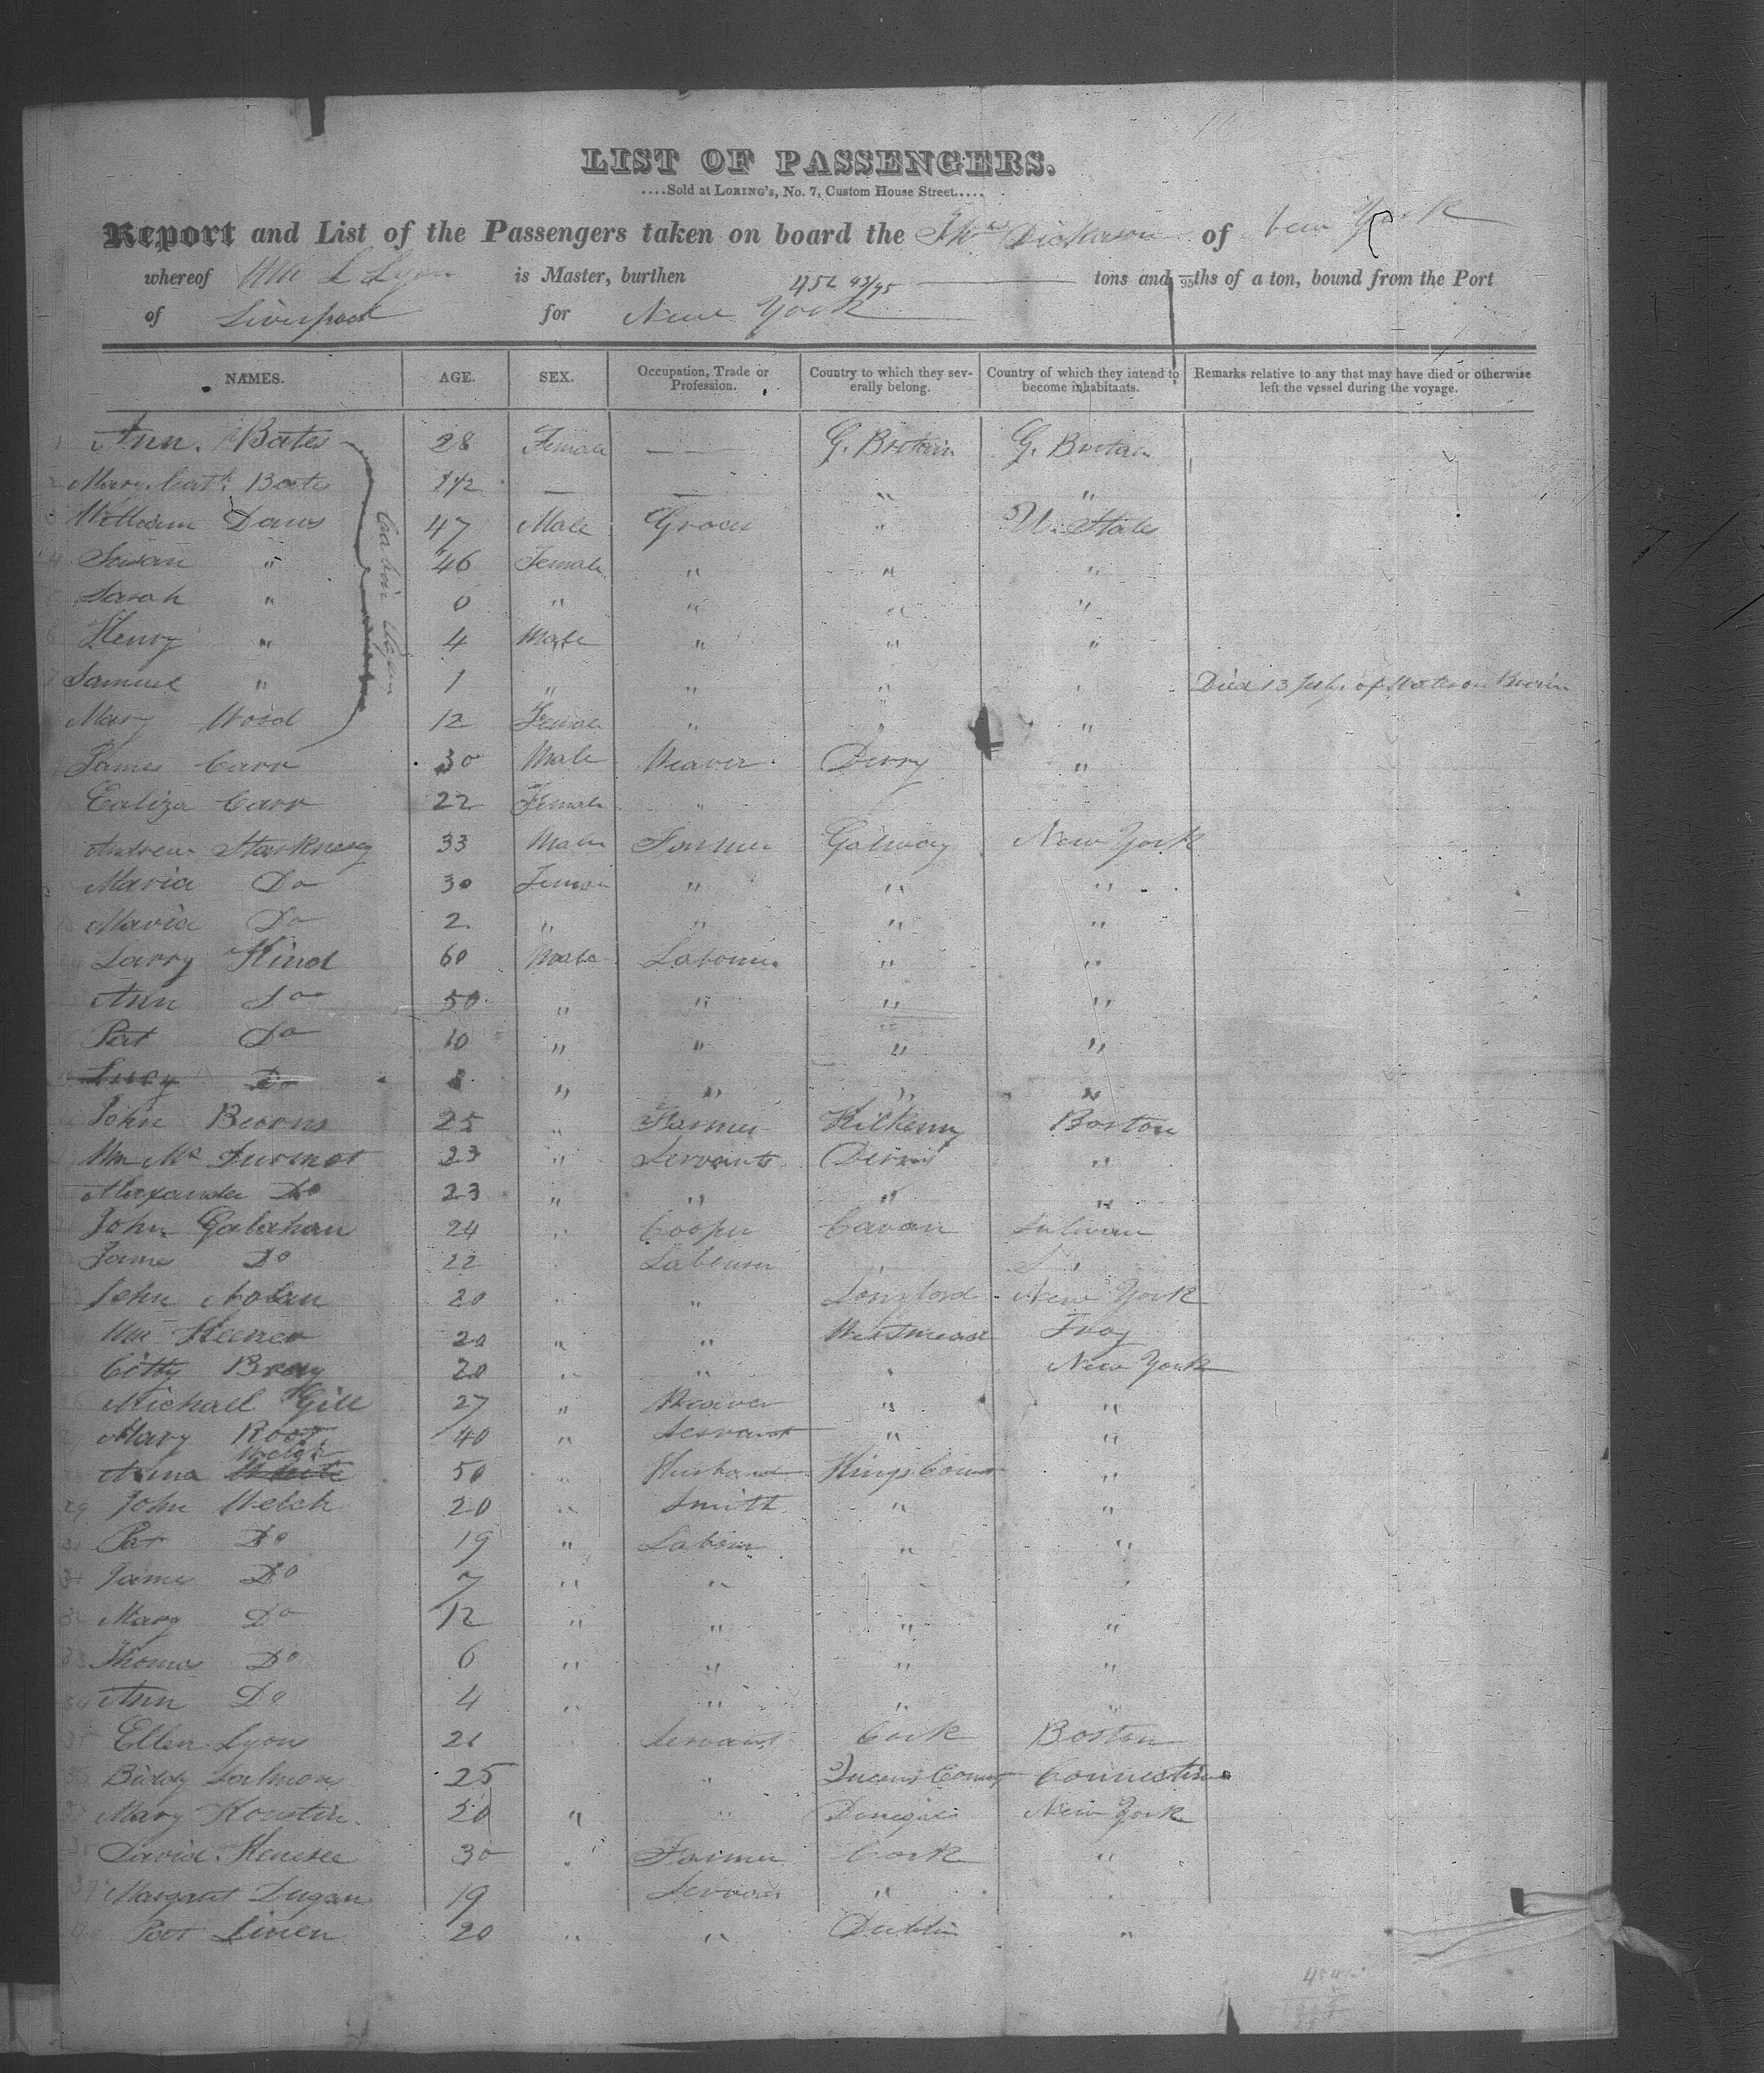 LIST OF PASSENGERS.
....Sold at LORING's, No. 7, Custom House Street.....
Report and List of the Passengers taken on board the Thos Dickason of New York
whereof Wm L Lyon is Master, burthen 454 93/95 tons and 95ths of a ton, bound from the Port
of Liverpool for New York
NAMES. AGE. SEX. Occupation, Trade or Profession. Country to which they severally belong. Country of which they intend to become inhabitants. Remarks relative to any that may have died or otherwise left the vessel during the voyage.
1 Ann. Bates 28 Female — — G. Britain G. Britain
2 Mary Cath. Bates — — " "
3 William Daws 47 Male Grocer " U. States
4 Susan " 46 Female " " "
5 Sarah " 6 " " " "
6 Henry " 4 Male " " "
7 Samuel " 1 " " " " Died 13 July of Water on Brain
Mary Wood 12 Female " " "
Cabin
James Carr 30 Male Weaver Derry "
Ealiza Carr 22 Female "
Andrew 33 Male Farmer Galway New York
Maria Do 30 Female " " "
Maria Do 2 " " " "
Larry Hind 60 Male Labourer " "
Ann Do 50 " " " "
Pat Do 10 " " " "
Lucy Do " " " "
John Beorns 25 " Farmer Kilkenny Boston
Wm Mc Durmot 23 " Servants Derry "
Alexander Do 23 " " " "
John Galahan 24 " Cooper Cavan
James Do 22 Labourer
John Nolan 20 " Longford New York
Wm 20 " " Westmeath Troy
Citty Bray 20 " " " New York
Michael Gill 27 " Weaver " "
Mary Root 40 " Servant " "
Welch
Anna White 50 " Husband Kings County "
29 John Welch 20 " Smith " "
30 Pat Do 19 " Labour " "
31 James Do 7 " " " "
32 Mary Do 12 " " " "
33 Thomas Do 6 " " " "
34 Ann Do 4 " " " "
35 Ellen Lyon 21 Servant Cork Boston
36 Biddy Salmon 25 " Queens County Connecticut
37 Mary 20 " " Donegal New York
38 David 30 " Farmer Cork "
39 Margaret Dugan 19 Servant "
40 Pat Linen 20 " " Dublin "